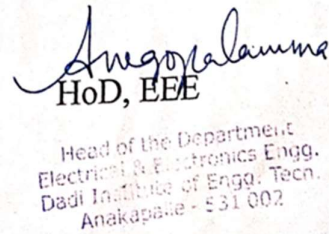 HoD, EEE
Head of the Department
Electrical & Electronics Engg.
Dadi Institute of Engg. Tecn.
Anakapalle - 531 002